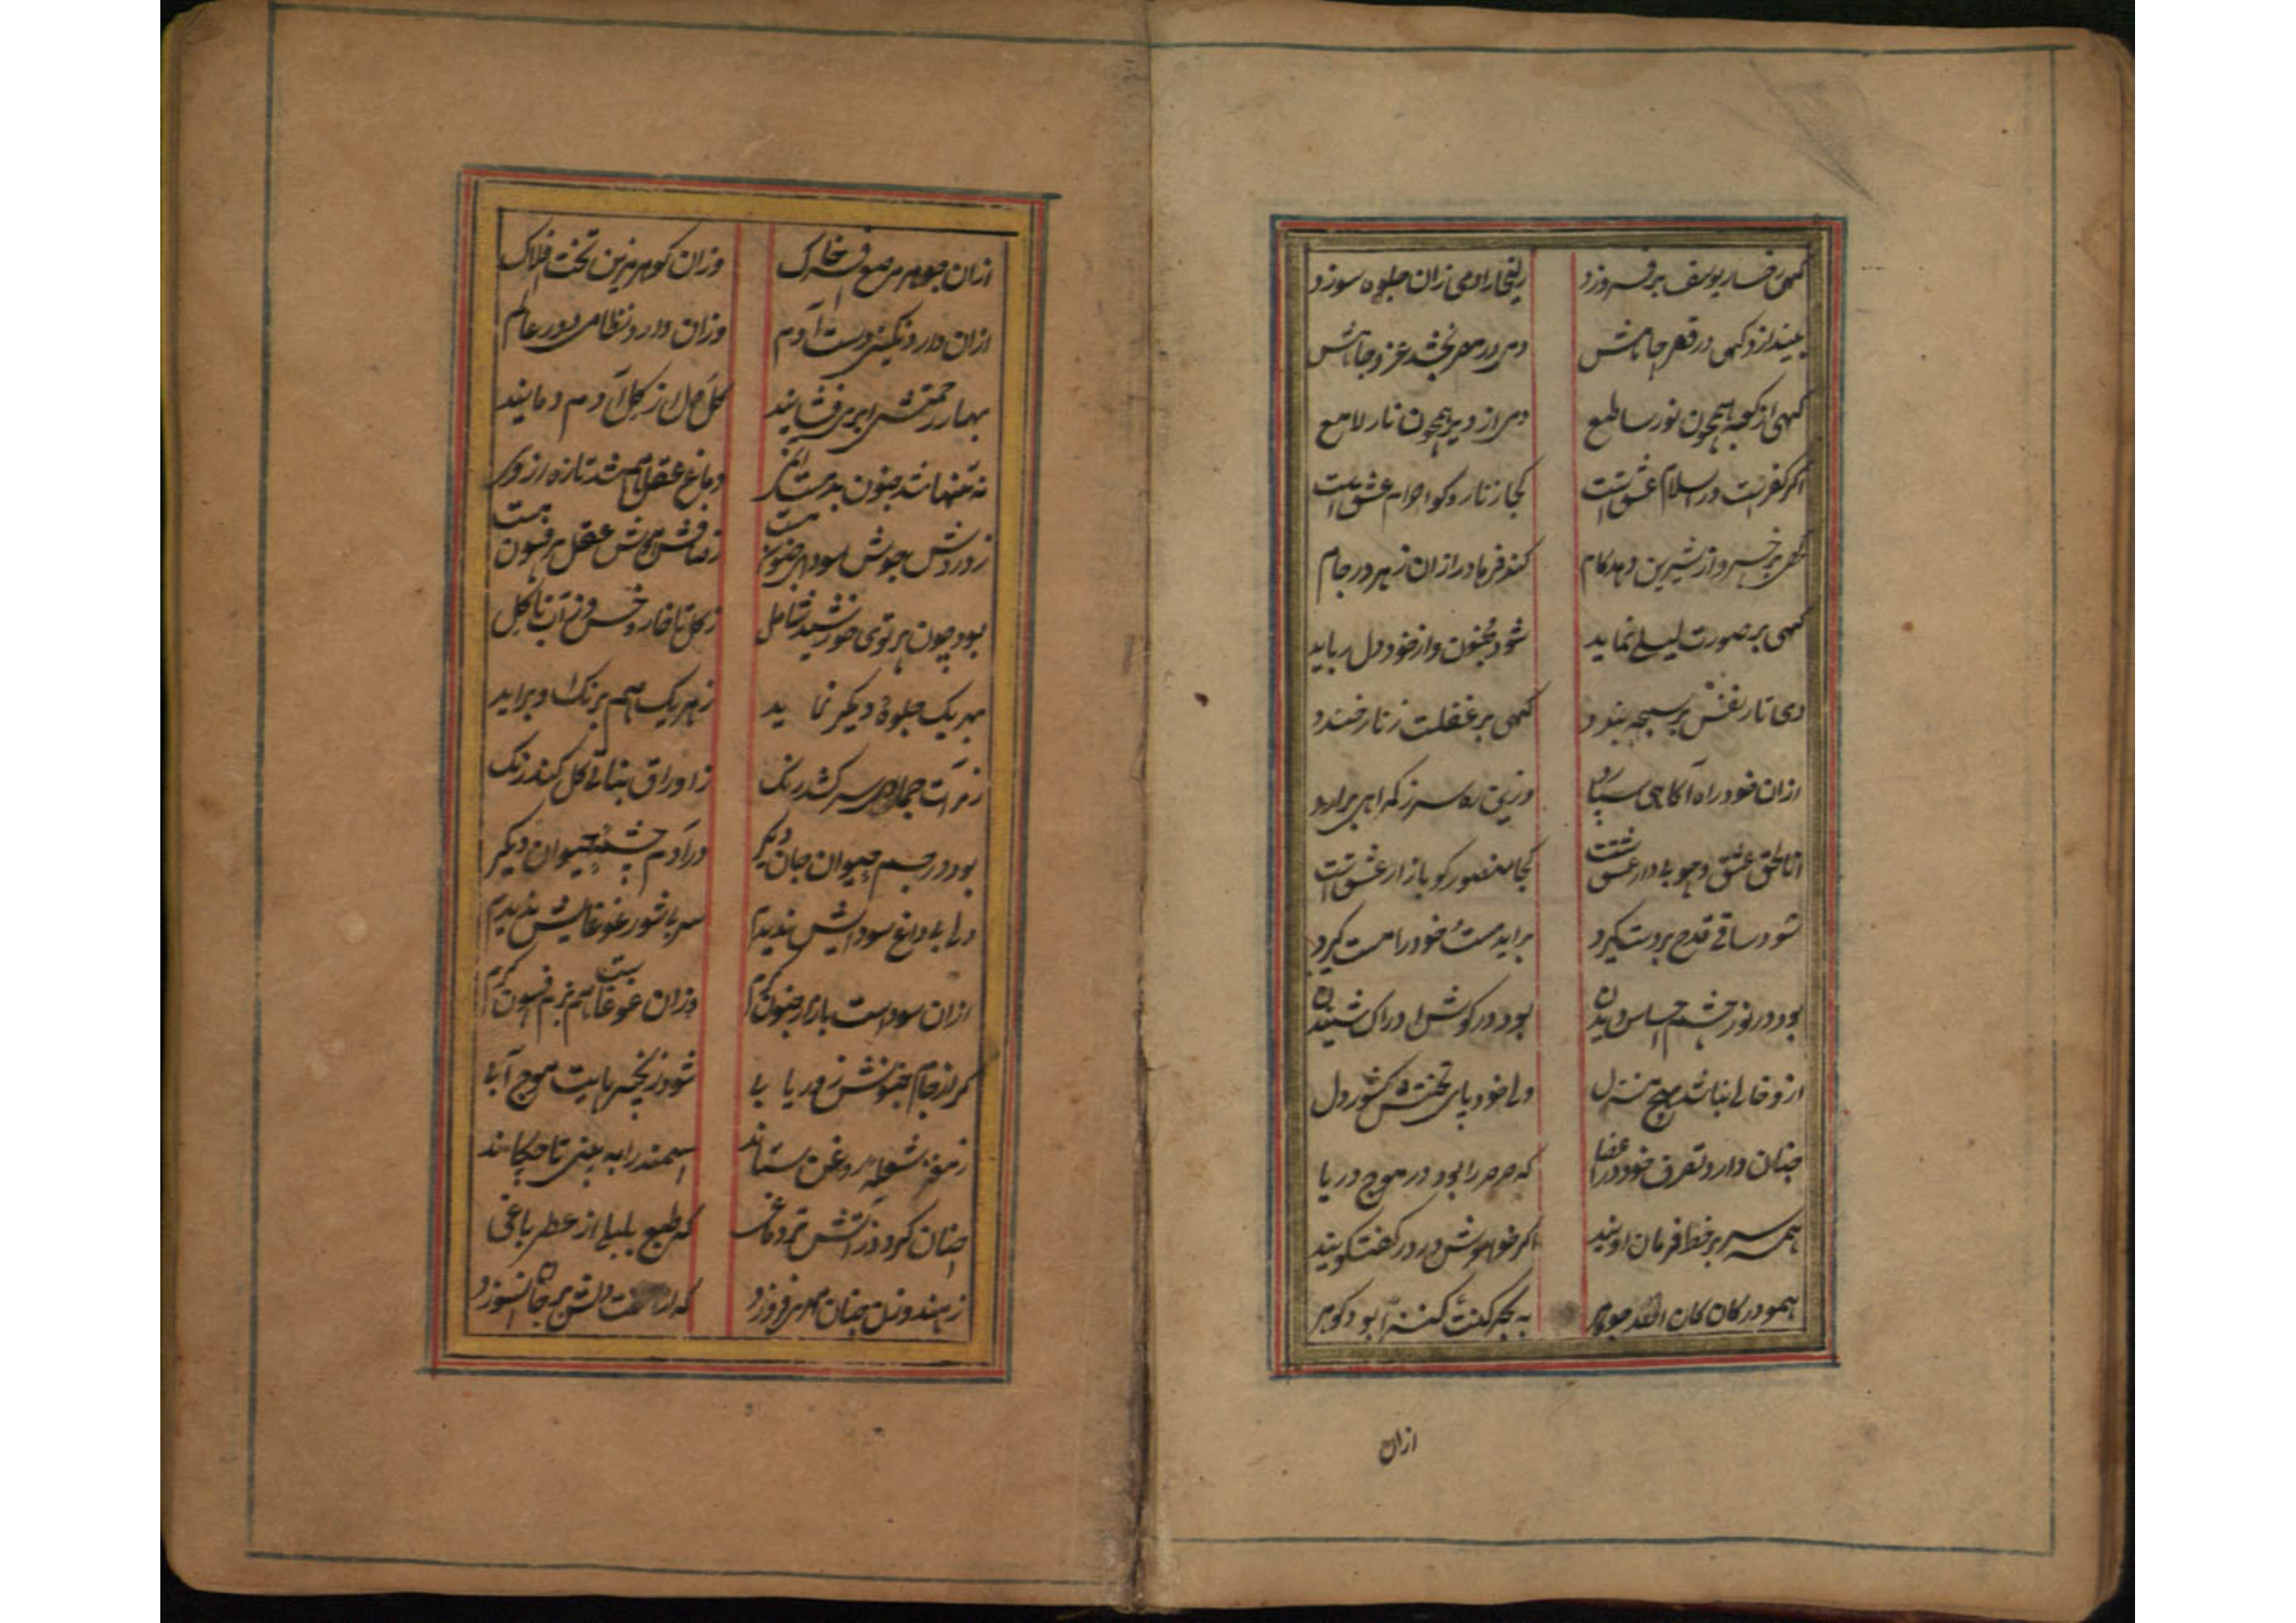 گهی رخسار یوسف برفروزد زلیخا را دمی زان جلوه سوزد
بیندازد گهی در قعر چاهش دمی در مصر بخشد عز و جاهش
گهی از کعبه همچون نور ساطع دمی از دیر همچون نار لامع
اگر کفر است در اسلام عشق است کجا زنار و کو احرام عشق است
گهی بر خسرو از شیرین دهد کام کند فرهاد را زان زهر در جام
گهی بر صورت لیلی نماید شود مجنون و از خود دل رباید
دمی تار نفس بر سبحه بندد گهی بر غفلت زنار خندد
ازان خود راه آگاهی سپارد وزین ره سر ز گمراهی برآرد
انا الحق عشق و چوب دار عشق است کجا منصور کو بازار عشق است
شود ساقی قدح بر دست گیرد برآید مست خود را مست گیرد
بود در نور چشم احساس دیدن بود در گوش ادراک شنیدن
ازو خالی نباشد هیچ منزل ولی خود پای تختش کشور دل
چنان دارد تصرف خود در اعضا که صرصر را بود در موج دریا
همه سر بر خط فرمان اویند اگر خاموش و در گفتگویند
همو در کان کان الله جوهر به بحر کنت کنزا بود گوهر
ازان
ازان جوهر مرصع افسر خاک وزان گوهر مزین تخت افلاک
ازان دارد نگینی دست آدم وزان دارد نظامی دور عالم
بهار رحمتش ابری فشانید گل دل از گل آدم دمانید
نه تنها شد جنون بدمست ازوی دماغ عقل هم شد تازه ازوی
ز دردش جوش سودای جنون است ز صافش هوش عقل پر فسون است
بود چون پرتوی خورشید شامل ز گل تا خار و خس وز آب تا گل
بهر یک جلوهٔ دیگر نماید ز هر یک هم برنگ او برآید
ز مرآت جمادی سر کشد رنگ ز اوراق نباتی گل کند رنگ
بود در جسم حیوان جان دیگر در آدم چشمهٔ حیوان دیگر
دلی بی داغ سودایش ندیدم سر بی شور غوغایش ندیدم
ازان سوداست بازار جنون گرم وزان غوغاست هم بزم فسون گرم
گر از جام جنونش زور یابی شود زنجیر پایت موج آبی
ز مغز شعله روغن ستاند سمندر را به بینی تا چکاند
چنان گردد ز آتش تر دماغی که طبع بلبلی از عطر باغی
ز هندو زن چنان مهر برفروزد که از دلش بر جان نسوزد